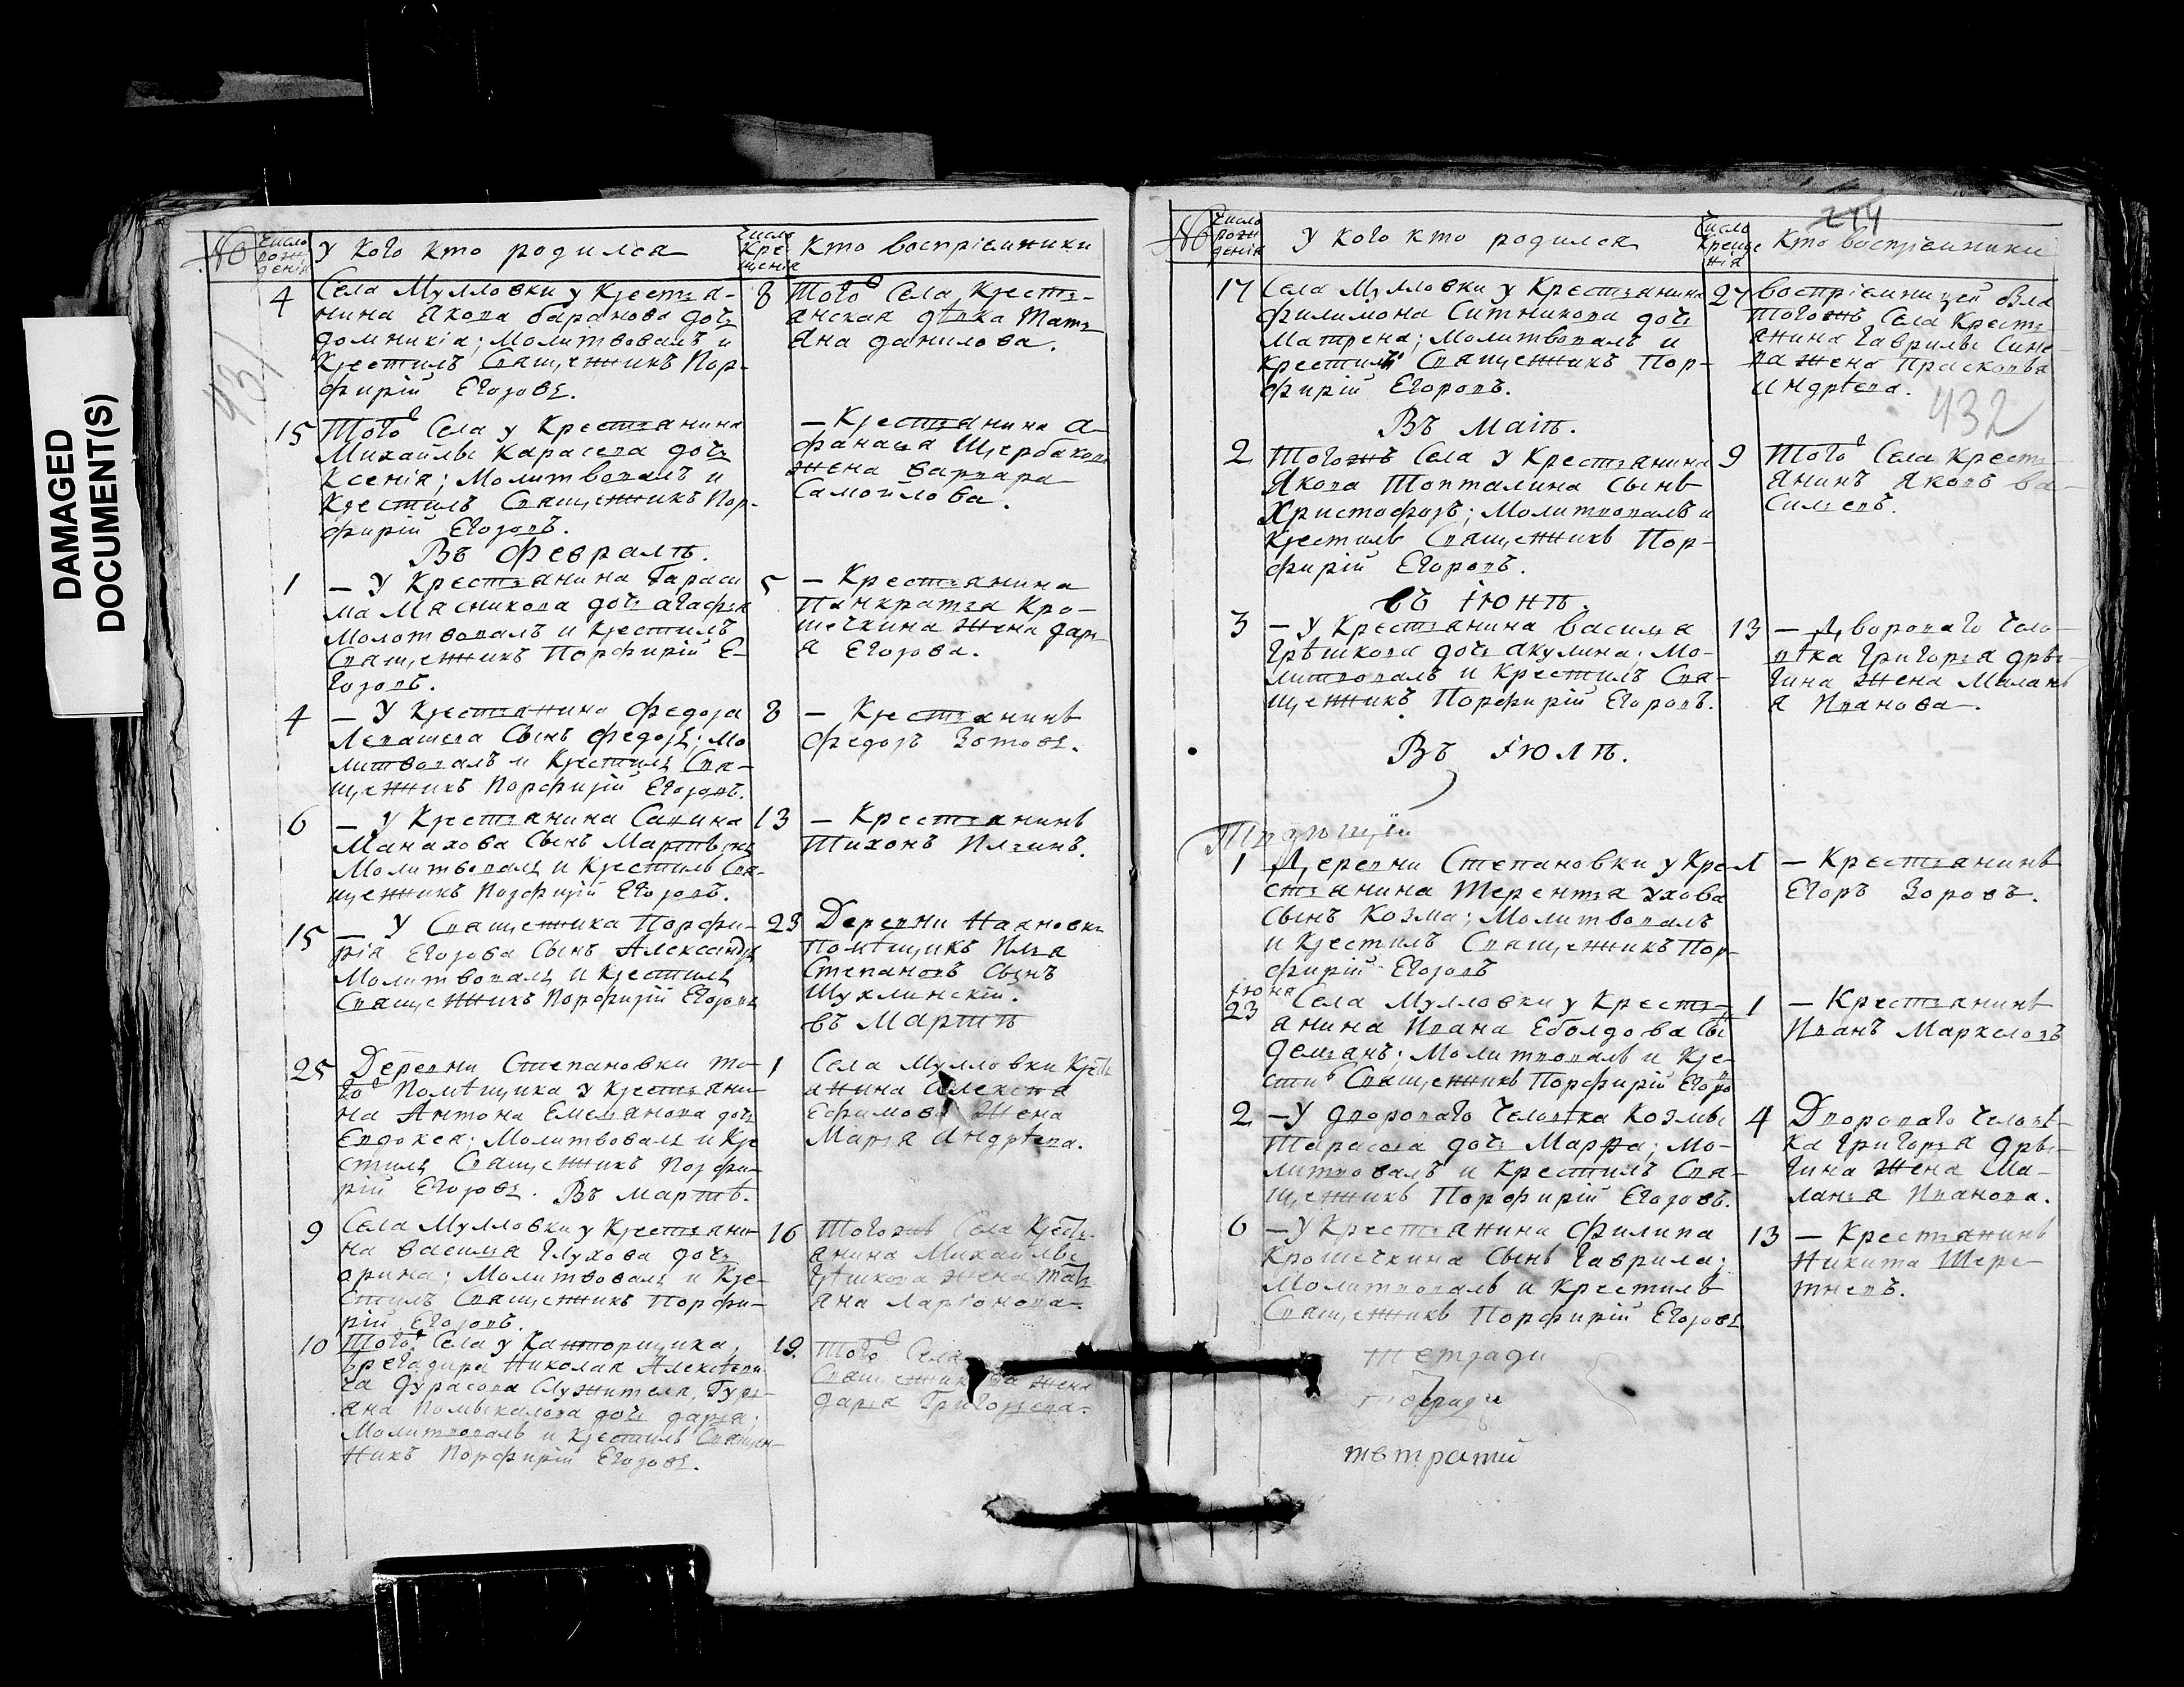 DAMAGED
DOCUMENT(S)
431
№
Число рожденія
У кого кто родился
Число Крещенія
Кто воспріемники
4
Села Мулловки у крестья-
нина Якова баранова дочь
домникія; Молитвовалъ и
Крестилъ Священникъ Пор-
фирій Егоровъ.
8
Того Села Кресть-
янская дѣвка Тать
яна данилова.
15
Того Села у Крестьянина
Михайлы Карасева дочь
Ксенія; Молитвовалъ и
Крестилъ Священникъ Пор-
фирій Егоровъ.
— Крестьянина а-
фанасья Щербакова
жена варвара
Самойлова.
Въ Февралѣ.
1
— У Крестьянина Гараси
ма Масникова дочь агафья
Молотвовалъ и Крестилъ
Священникъ Порфирій Е-
горовъ.
5
— Крестьянина
Панкратья Кро-
шечкина жена дарь
я Егорова.
4
— У Крестьянина Федора
Левашева Сынъ Федоръ; Мо
литвовалъ и Крестилъ Свя-
щенникъ Порфирій Егоровъ.
8
— Крестьянинъ
Федоръ Зотовъ.
6
— У Крестьянина Савина
Манахова Сынъ
Молитвовалъ и Крестилъ Свя-
щенникъ Порфирій Егоровъ.
13
— Крестьянинъ
Тихонъ Илзинъ.
15
— У Священника Порфи-
рія Егорова Сынъ Александръ
Молитвовалъ и Крестилъ
Священникъ Порфирій Егоровъ
23
Деревни
Помѣщикъ Илья
Степановъ Сынъ
Шуклинскій.
въ Мартѣ
25
Деревни Степановки то-
го Помѣщика у крестьяни-
на Антона Емельянова дочь
Евдокея; Молитвовалъ и Кре
стилъ Священникъ Порфи-
рій Егоровъ. Въ Мартѣ.
1
Села Мулловки Кресть
янина Алексѣя
Ефимова Жена
Марья Андрѣева.
9
Села Мулловки у Крестьяни-
на василья Глухова дочь
арина; Молитвовалъ и Кре-
стилъ Священникъ Порфи-
рій Егоровъ.
16
Тогожъ Села Кресть-
янина Михайлы
Грѣшкова жена Тать
яна Ларіонова.
10
Того Села у Канторщика,
брегадира Николая Алексѣеви-
ча дурасова Служителя, Гурь-
яна Помыкалова дочь дарья;
Молитвовалъ и Крестилъ Священ-
никъ Порфирій Егоровъ.
19.
Того Села
Священникова жена
дарья Григорьева.
№
Число рожденія
У кого кто родился
Число Крещенія
244
Кто воспріемники
17
Села Мулловки у Крестьянина
филимона Ситникова дочь
Матрена; Молитвовалъ и
крестилъ Священникъ Пор-
фирій Егоровъ.
27
воспріемницей была
тогожъ Села Кресть-
янина Гаврилы Сине-
ва жена Прасковья
андрѣева.
432
Въ Маіѣ.
2
Тогожъ Села у Крестьянина
Якова Топталина Сынъ
Христофоръ; Молитвовалъ и
Крестилъ Священникъ Пор-
фирій Егоровъ.
9
Того Села крестъ
янинъ Яковъ ва-
Сильевъ.
въ іюнѣ.
3
— У Крестьянина василья
Грѣшкова дочь акулина; Мо-
литвовалъ и Крестилъ Свя-
щенникъ Порфирій Егоровъ.
13
— Двороваго Чело-
вѣка Григорья дры-
гина жена Малань
я Иванова.
Въ іюлѣ.
1
Деревни Степановки у Кре
стьянина Терентья Ухова
Сынъ Козма; Молитвовалъ
и Крестилъ Священникъ Пор-
фирій Егоровъ
— Крестьянинъ
Егоръ Зоровъ.
іюня
23
Села Мулловки у Кресть-
янина Ивана Еболдова Сы
демьянъ; Молитвовалъ и Кре-
стилъ Священникъ Порфирій Егоровъ
1
— Крестьянинъ
Иванъ Маркеловъ
2
— У двороваго Человѣка Козмы
Тарасова дочь Марфа; Мо-
литвовалъ и крестилъ Свя-
щенникъ Порфирій Егоровъ.
4
Двороваго Человѣ-
ка Григорья дры-
гина Жена Ма-
ланья Иванова.
6
— У Крестьянина Филипа
Крошечкина Сынъ Гаврила;
Молитвовалъ и крестилъ
Священникъ Порфирій Егоровъ
13
— Крестьянинъ
Никита Шере-
тневъ.
тетради
тетради
тетрати